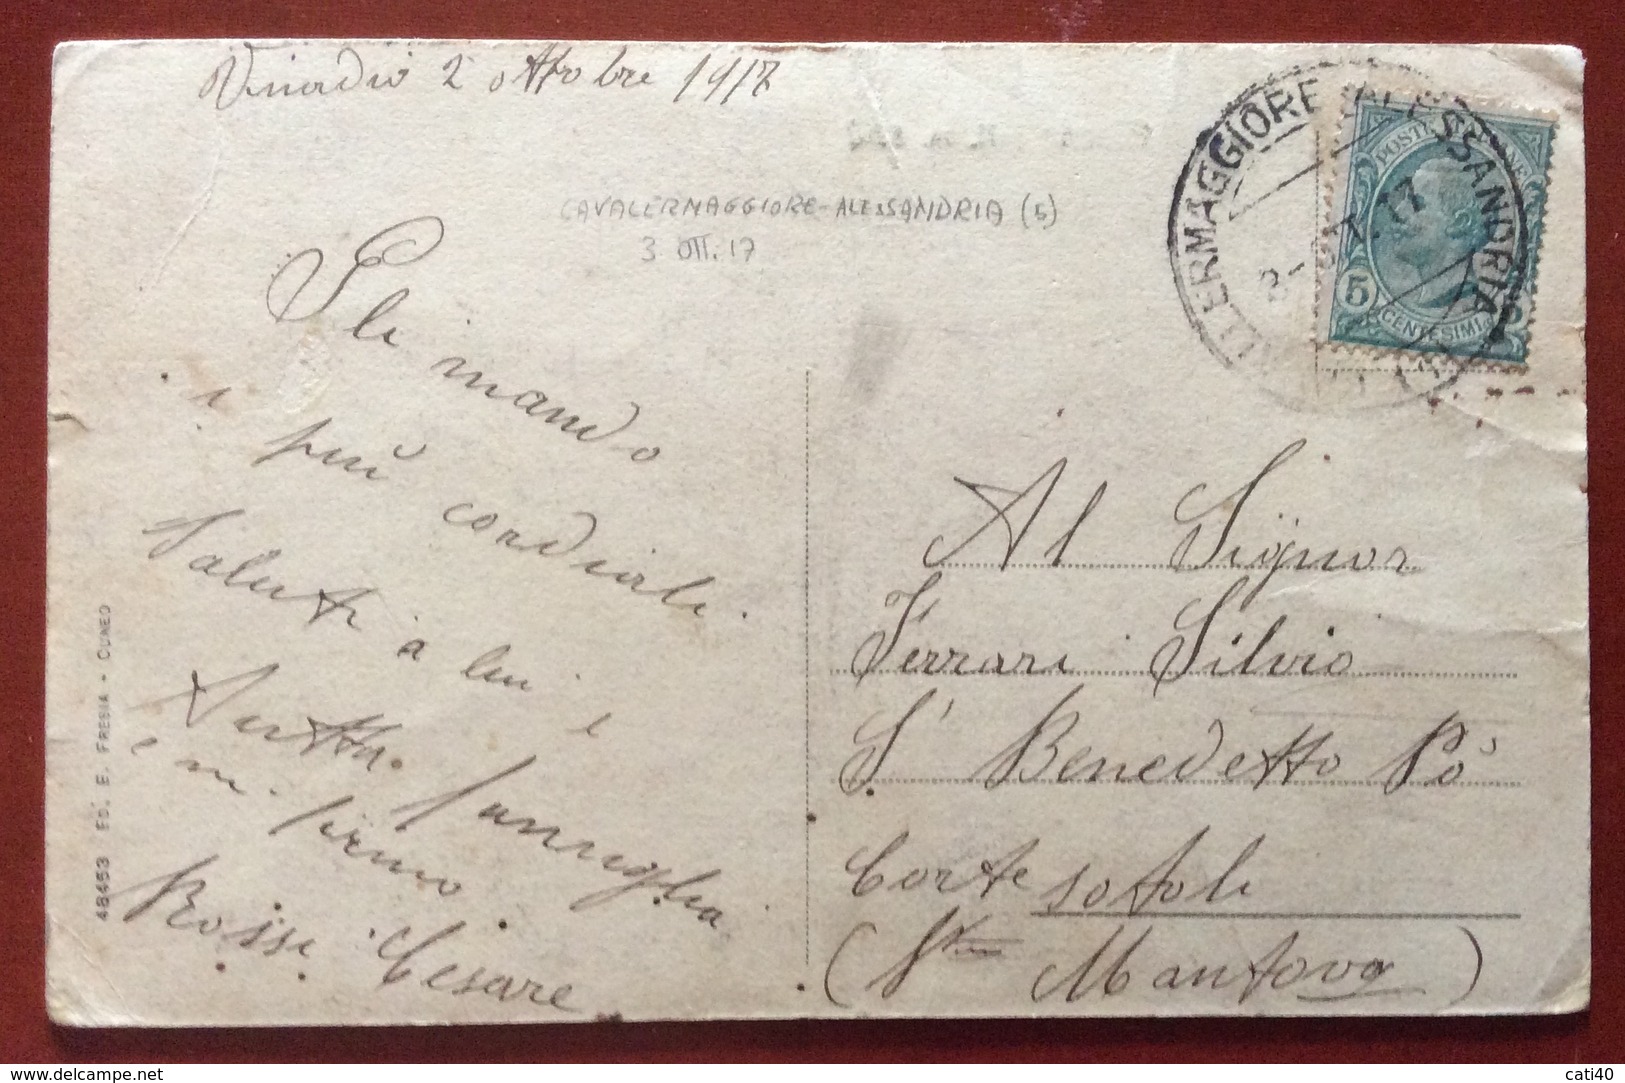 Vinadio 2 ottobre 1917
CAVALERMAGGIORE-ALESSANDRIA (5)
3 OTT. 17
Gli mando
i più cordiali
saluti a lui e
tutta famiglia
e mi firmo
Rossi Cesare
48453 ED. E. FRESIA - CUNEO
ALLERMAGGIORE ALESSANDRIA
POSTE ITALIANE
5
CENTESIMI
Al Signor
Ferrari Silvio
S. Benedetto Pò
Corte sotoli
Mantova
www.delcampe.net
cati40